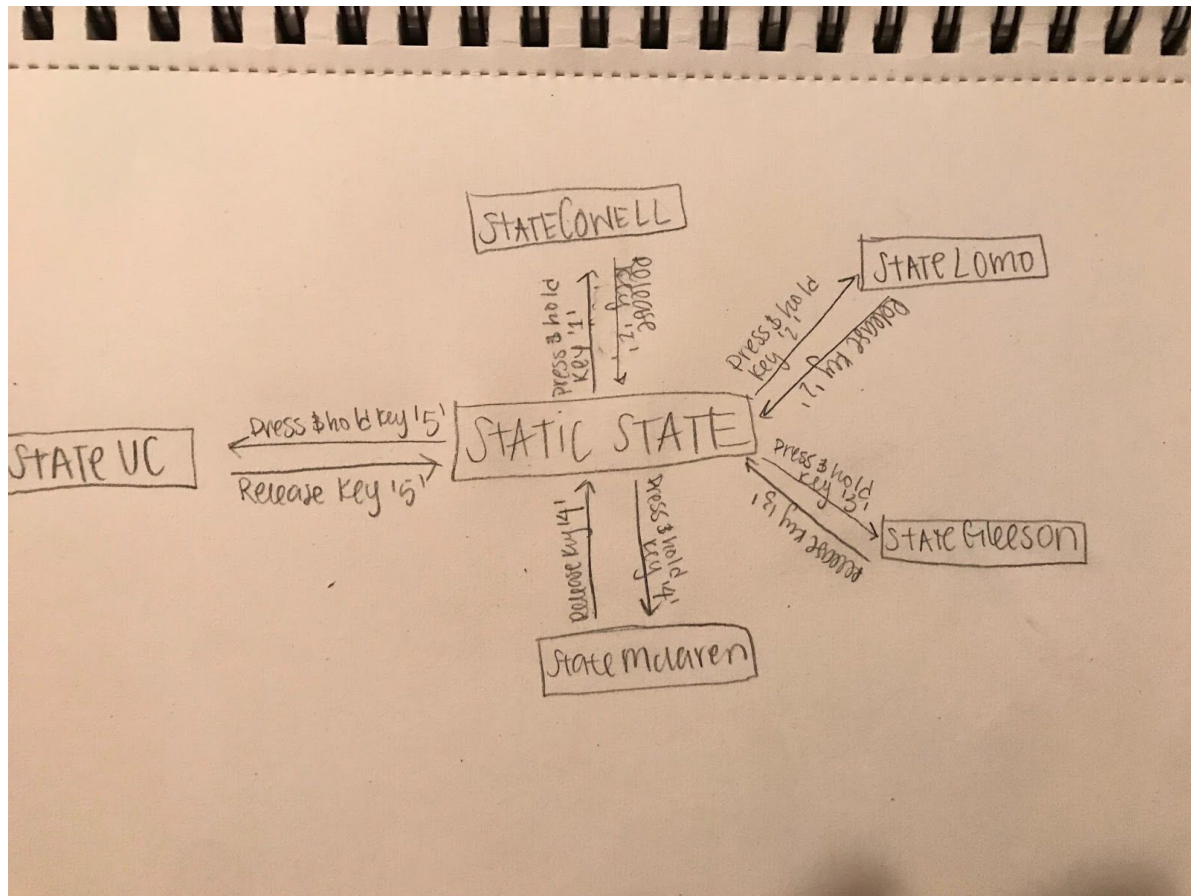 STATECOWELL
STATE LOMO
Press & hold
key '1'
Release
key '1'
Press & hold
key '2'
Release key '2'
STATIC STATE
Press & hold key '5'
STATE UC
Release key '5'
Press & hold
key '3'
Release key '3'
STATE Gleeson
Release key '4'
Press & hold
key '4'
State Mclaren